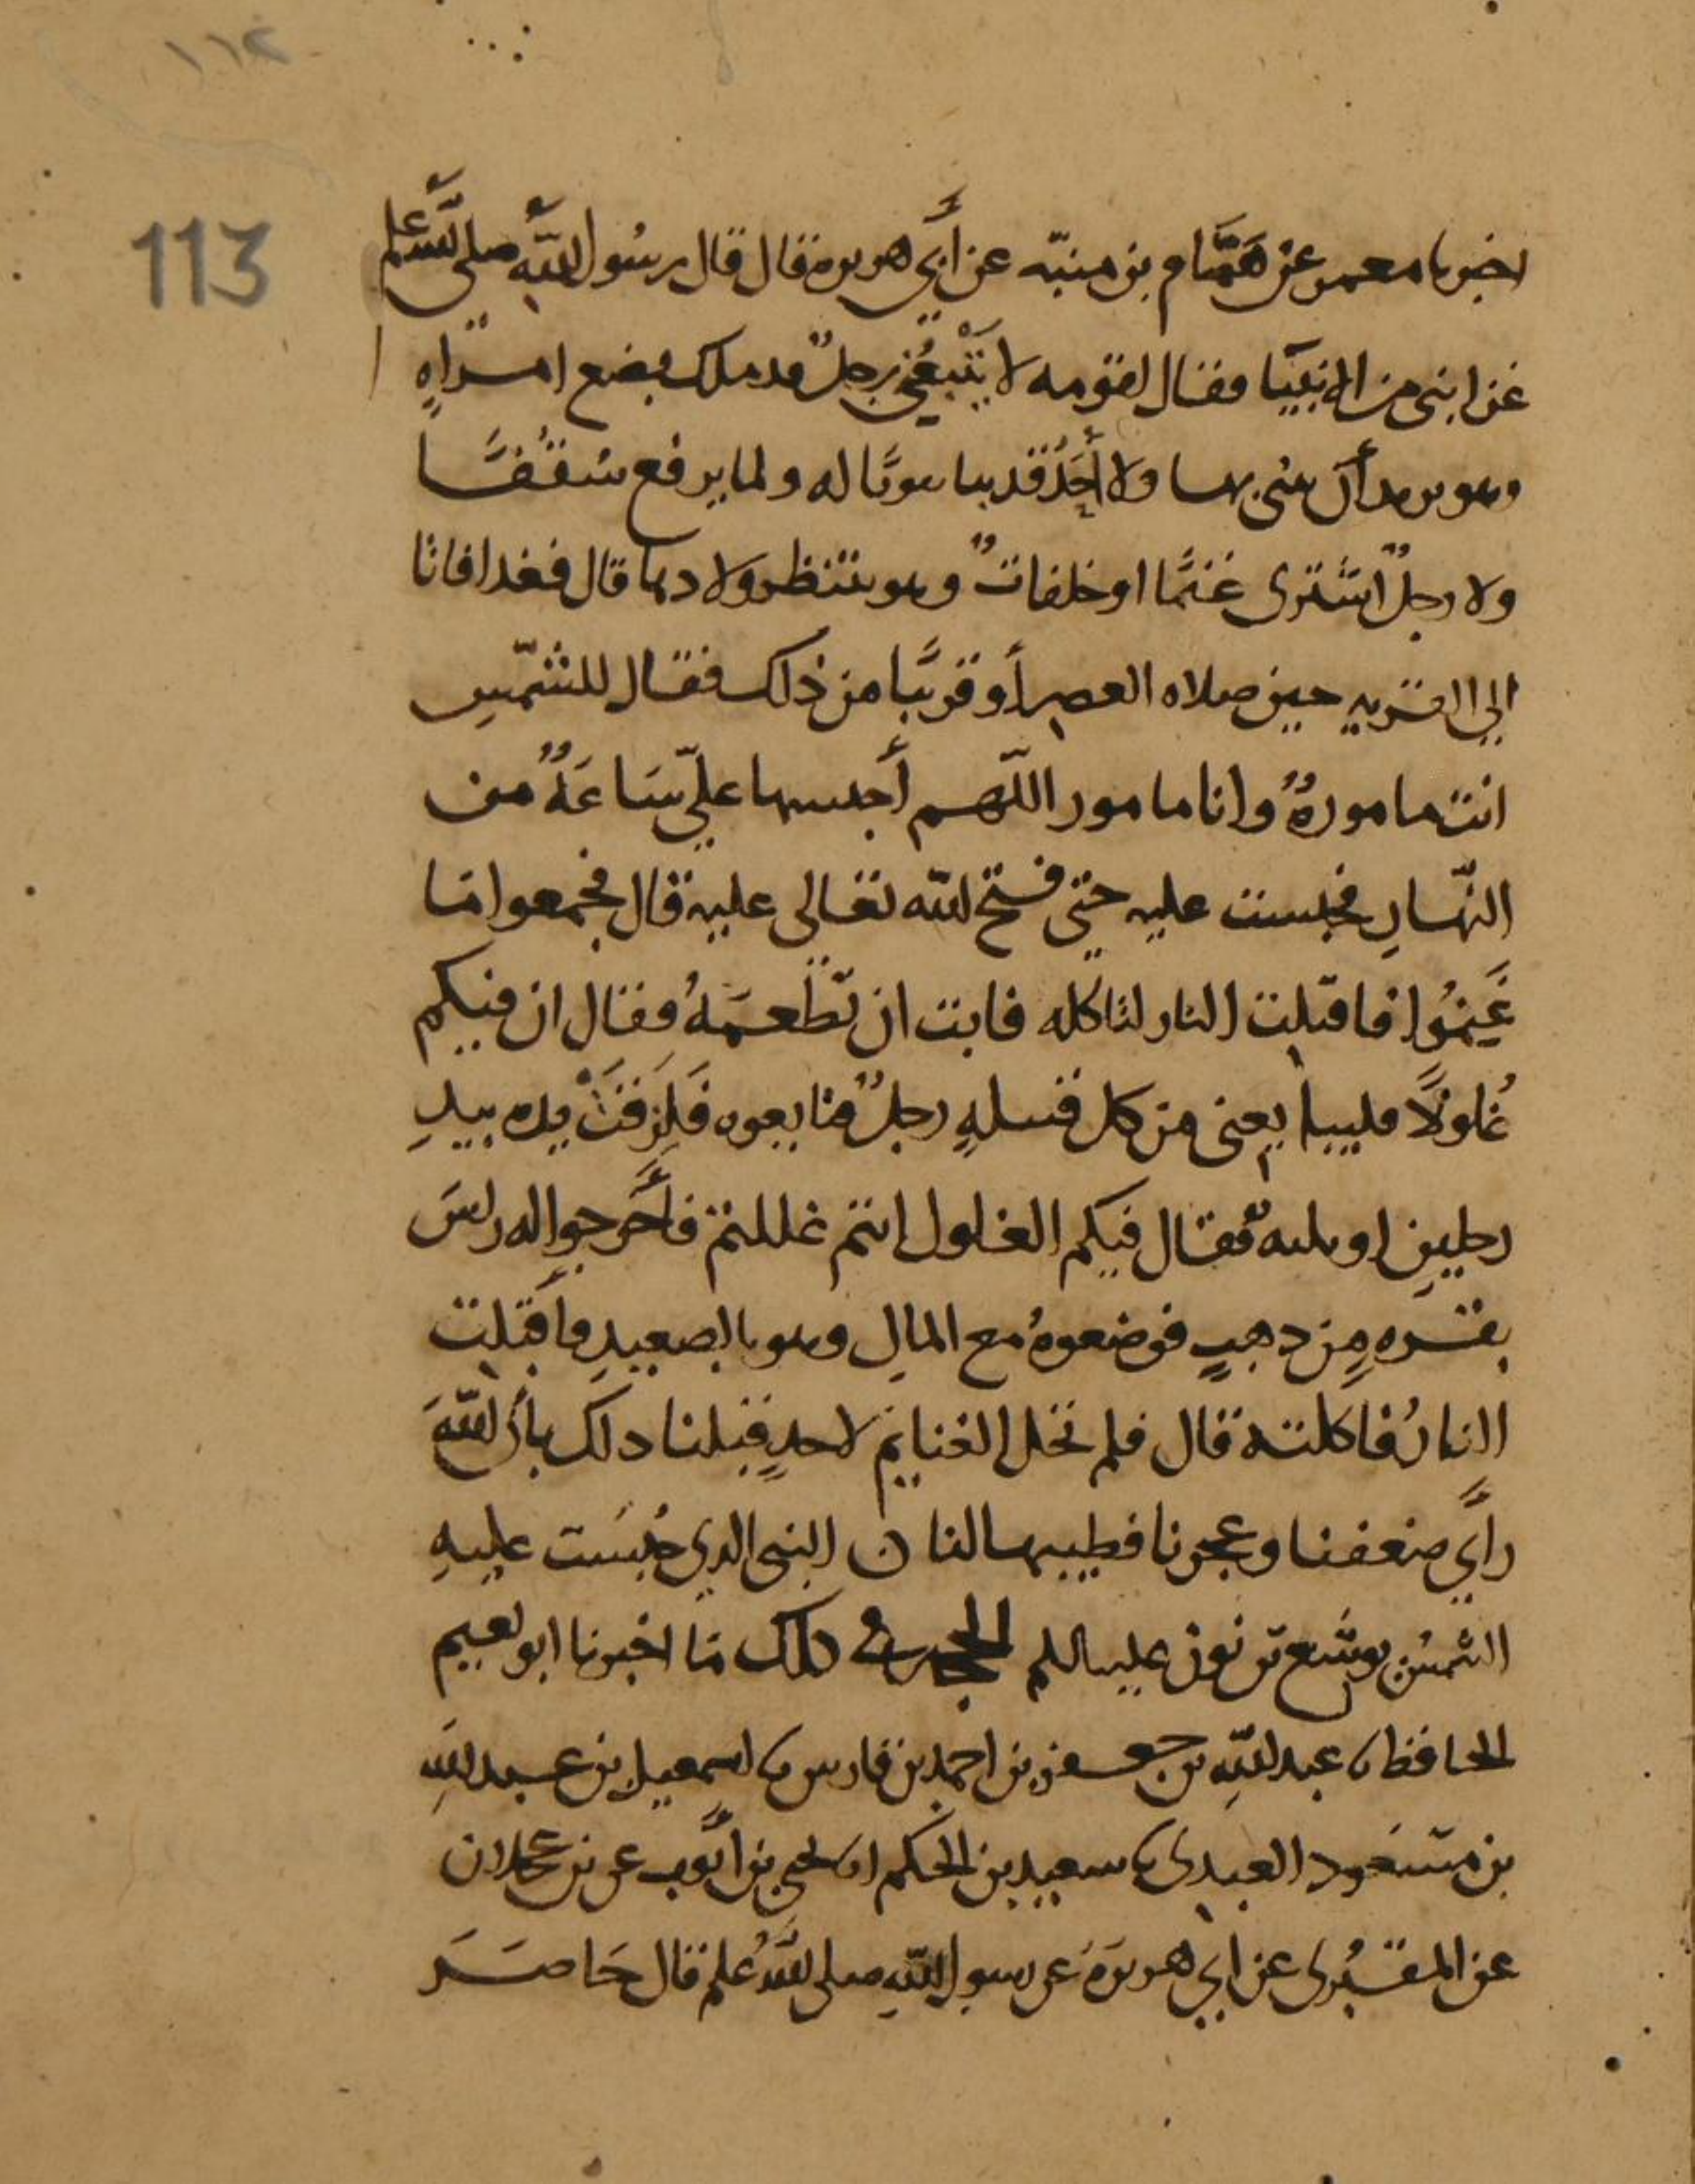 ١١٢
113
اخبرنا معمر عن همَّام بن منبّه عن أبي هريرة قال قال رسُول اللَّه صلى الله عليه وسلم
غزا نبي من الانبيَا فقال لقومه لا يَتْبعُني رجلٌ قد ملك بضع امراهٍ
وهو يريد أن يبني بها ولا أحَدٌ قد بنا بيوتًا له ولما يرفع سُقُفهَا
ولا رجلٌ اشترى غنمًا او خلفاتٌ وهو ينتظر ولادها قال فغدا فاتا
الي القريه حين صلاه العصر أو قريبًا من ذلك فقال للشّمسِ
انت مامورهٌ وانا مامور اللّهم أحبسها عليّ سَاعَةً من
النّهارِ فحبست عليه حتي فتح الله تعالى عليه قال فجمعوا مَا
غَنِمُوا فاقبلت النار لتاكله فابت ان تطعمَهُ فقال ان فيكم
غُلولًا فليبايعنى من كل قبيلهٍ رجلٌ فتابعوه فَلَزقتْ يده بيدِ
رجلينِ او ثلثه فقال فيكم الغلول انتم غللتم فأَخرجوا له راسَ
بقرهٍ مِن ذهبٍ فوضعوهُ مع المالِ وهو بالصعيدِ فأقبلت
النارُ فاكلته قال فلم تحل الغنايم لاحدٍ قبلنا دلك بأن اللَّهَ
رأَي ضعفنا وعجزنا فطيبها لنا ن النبي الدي حُبسَت عليهِ
الشمسُ يوشع بن نون عليه السلم الحجه في ذلك مَا اخبرنا ابو نعيم
الحافظ نا عبد اللّهِ بن جعفر بن احمد بن فارس نا اسمعيل بن عبد اللهِ
بن مسعود العبدى نا سعيد بن الحكم انا يحيى بن أيّوب عن بن عجلان
عن المقبُرى عن ابي هريرَة عن رسول اللّهِ صلى الله عليه وسلم قال حَاصَرَ